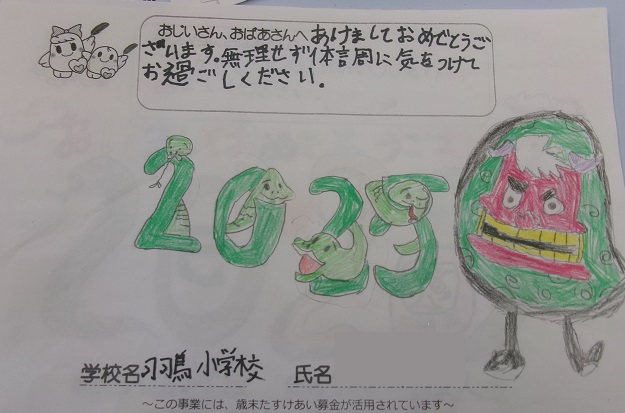 おじいさん、おばあさんへあけましておめでとうご
ざいます。無理せず体調に気をつけて
お過ごしください.
2025
学校名 羽鳥小学校 氏名
〜この事業には、歳末たすけあい募金が活用されています〜